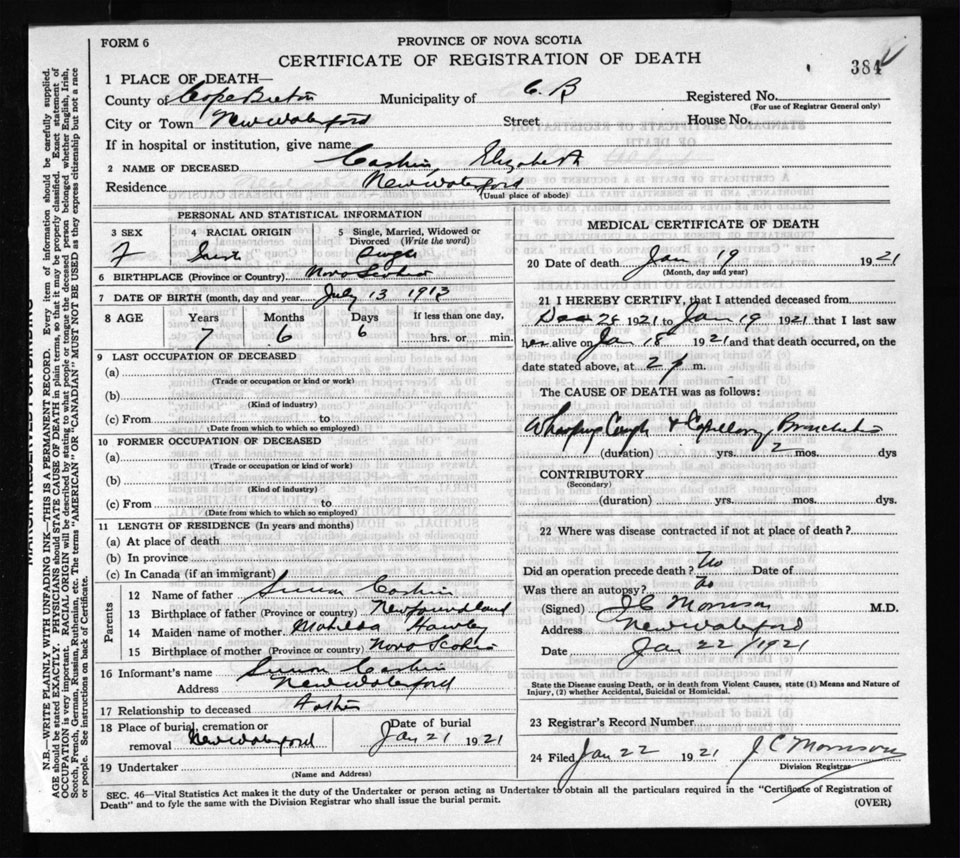 FORM 6
PROVINCE OF NOVA SCOTIA
CERTIFICATE OF REGISTRATION OF DEATH
384
1 PLACE OF DEATH—
County of Cape Breton Municipality of C. B Registered No.
(For use of Registrar General only)
City or Town New Waterford Street House No.
If in hospital or institution, give name
2 NAME OF DECEASED Cashin Elizabeth
Residence New Waterford
(Usual place of abode)
PERSONAL AND STATISTICAL INFORMATION
3 SEX 4 RACIAL ORIGIN 5 Single, Married, Widowed or Divorced (Write the word)
F Single
6 BIRTHPLACE (Province or Country) Nova Scotia
7 DATE OF BIRTH (month, day and year) July 13 1913
8 AGE Years Months Days If less than one day,
7 6 6 hrs. or min.
9 LAST OCCUPATION OF DECEASED
(a)
(Trade or occupation or kind or work)
(b)
(Kind of industry)
(c) From to
(Date from which to which so employed)
10 FORMER OCCUPATION OF DECEASED
(a)
(Trade or occupation or kind of work)
(b)
(Kind of industry)
(c) From to
(Date from which to which so employed)
11 LENGTH OF RESIDENCE (In years and months)
(a) At place of death
(b) In province
(c) In Canada (if an immigrant)
Parents
12 Name of father Simon Cashin
13 Birthplace of father (Province or country) Newfoundland
14 Maiden name of mother Matilda Hawley
15 Birthplace of mother (Province or country) Nova Scotia
16 Informant's name Simon Cashin
Address New Waterford
17 Relationship to deceased Father
18 Place of burial, cremation or removal New Waterford Date of burial Jan 21 1921
19 Undertaker
(Name and Address)
MEDICAL CERTIFICATE OF DEATH
20 Date of death Jan 19 1921
(Month, day and year)
21 I HEREBY CERTIFY, that I attended deceased from
1921 to Jan 19 1921 that I last saw
her alive on Jan 18 1921 and that death occurred, on the
date stated above, at 2 p m.
The CAUSE OF DEATH was as follows:
Whooping Cough & Capillary Bronchitis
(duration) yrs. 2 mos. dys
CONTRIBUTORY
(Secondary)
(duration) yrs. mos. dys.
22 Where was disease contracted if not at place of death?
Did an operation precede death? No Date of
Was there an autopsy? no
(Signed) J C Morrison M.D.
Address New Waterford
Date Jan 22 / 1921
State the Disease causing Death, or in death from Violent Causes, state (1) Means and Nature of
Injury, (2) whether Accidental, Suicidal or Homicidal.
23 Registrar's Record Number
24 Filed Jan 22 1921 J C Morrison
Division Registrar
SEC. 46—Vital Statistics Act makes it the duty of the Undertaker or person acting as Undertaker to obtain all the particulars required in the "Certificate of Registration of
Death" and to fyle the same with the Division Registrar who shall issue the burial permit.
(OVER)
MARGIN RESERVED FOR BINDING
N.B.—WRITE PLAINLY WITH UNFADING INK—THIS IS A PERMANENT RECORD. Every item of information should be carefully supplied.
AGE should be stated EXACTLY. PHYSICIANS should STATE CAUSE OF DEATH in plain terms, so that it may be properly classified. Exact statement of
OCCUPATION is very important. RACIAL ORIGIN will be described by stating to what people or tongue the deceased person belonged whether English, Irish,
Scotch, French, German, Russian, Ruthenian, etc. The terms "AMERICAN" OR "CANADIAN" MUST NOT BE USED as they express citizenship but not a race
or people. See instructions on back of Certificate.